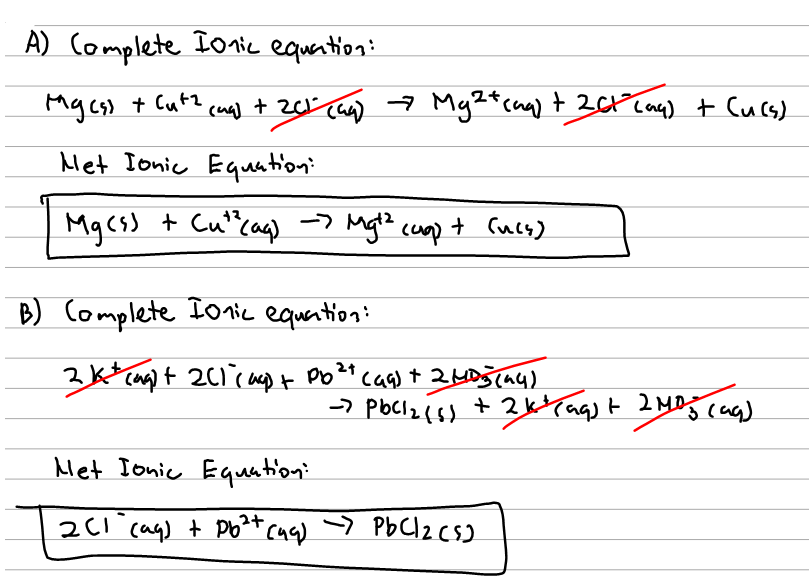 A) Complete Ionic equation:
Mg(s) + Cu⁺²(aq) + 2Cl⁻(aq) → Mg²⁺(aq) + 2Cl⁻(aq) + Cu(s)
Net Ionic Equation:
Mg(s) + Cu⁺²(aq) → Mg⁺²(aq) + Cu(s)
B) Complete Ionic equation:
2K⁺(aq) + 2Cl⁻(aq) + Pb²⁺(aq) + 2NO₃⁻(aq)
→ PbCl₂(s) + 2K⁺(aq) + 2NO₃⁻(aq)
Net Ionic Equation:
2Cl⁻(aq) + Pb²⁺(aq) → PbCl₂(s)